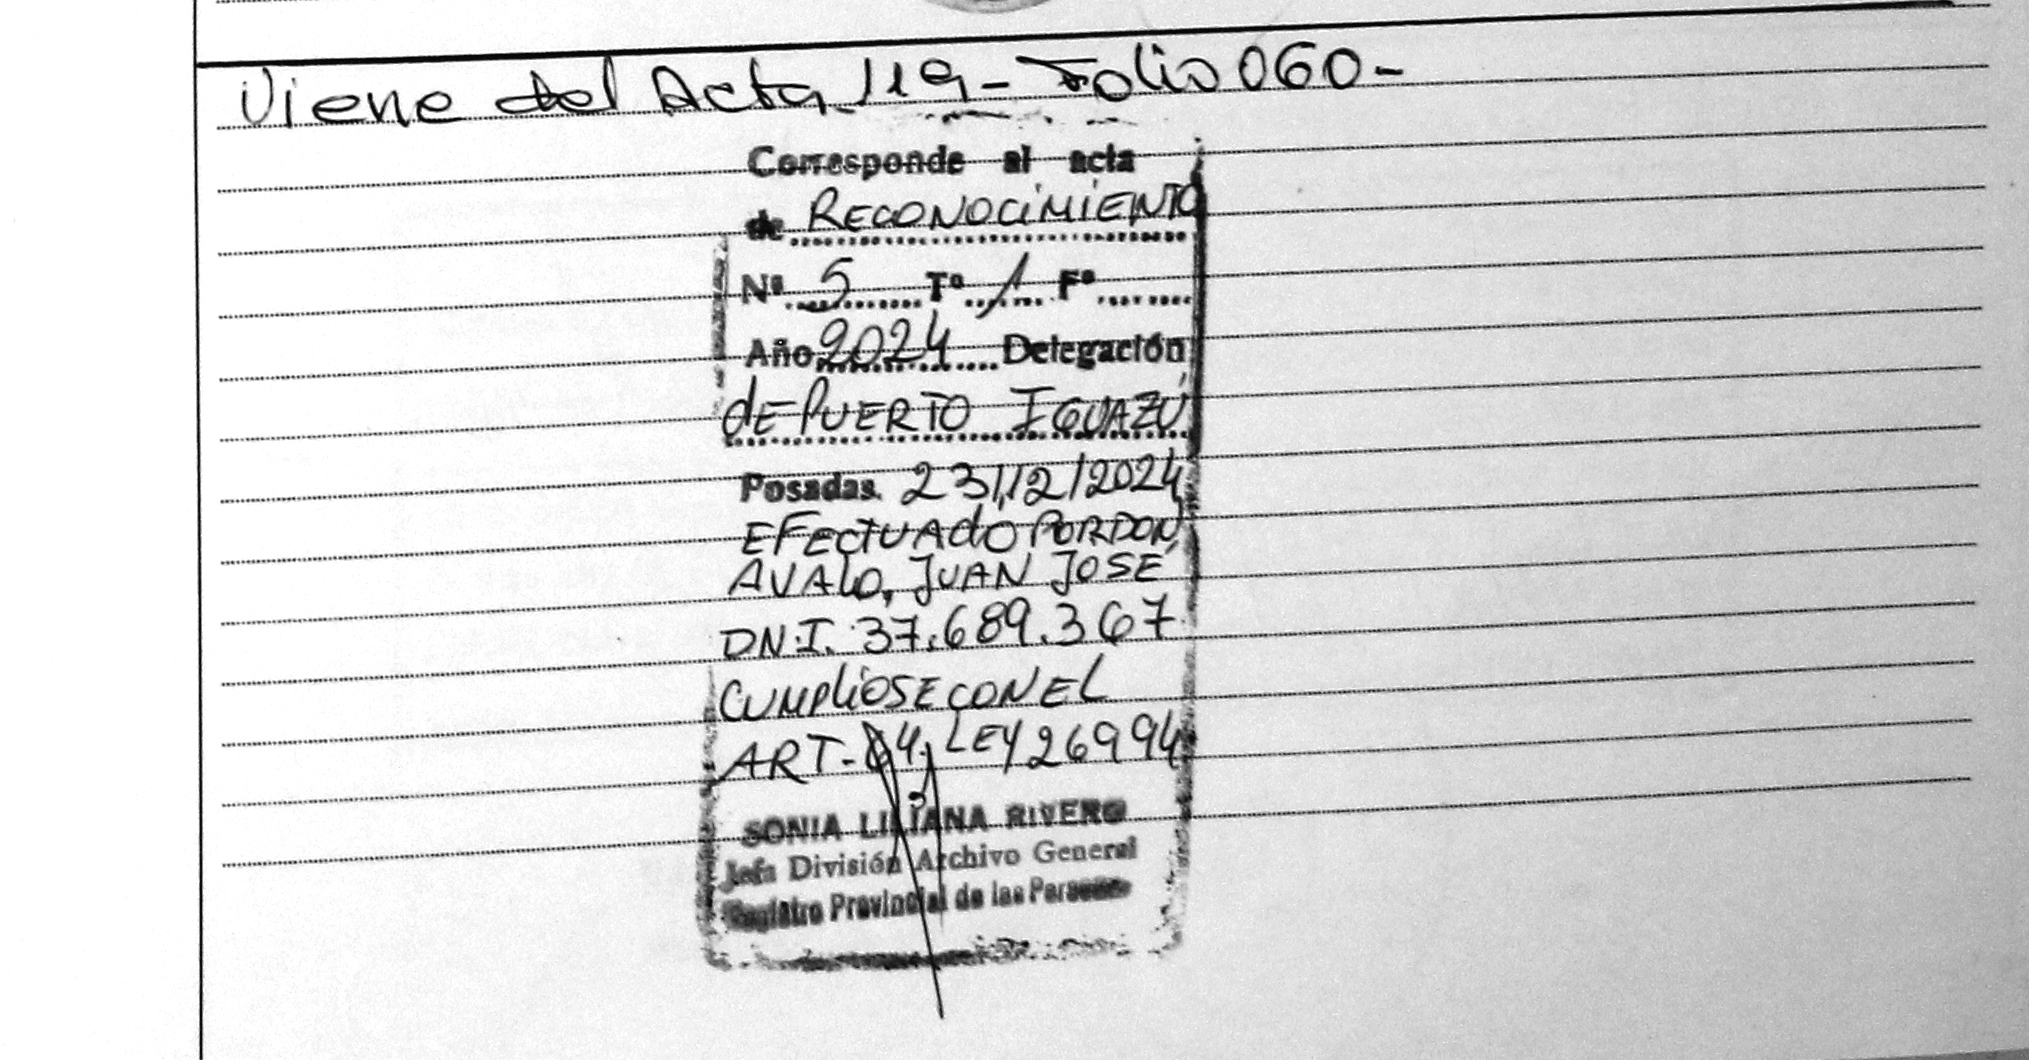 Viene del Acta 119 - Folio 060 -
Corresponde al acta
de RECONOCIMIENTO
Nº 5 Tº 1 Fº
Año 2024 Delegación
dE PUERTO IGUAZÚ
Posadas. 23/12/2024
EFECTUAdO POR DON,
AVALO, JUAN JOSÉ
D.N.I. 37.689.367
CUMPLIOSE CON EL
ART- 64, LEY 26994
SONIA LILIANA RIVERO
Jefa División Archivo General
Registro Provincial de las Personas